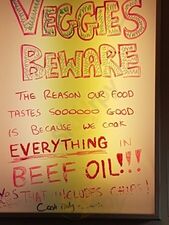 VEGGIES
BEWARE
THE REASON OUR FOOD
TASTES SOOOOOO GOOD
IS BECAUSE WE COOK
EVERYTHING IN
BEEF OIL!!!
THAT INCLUDES CHIPS!
Cash only